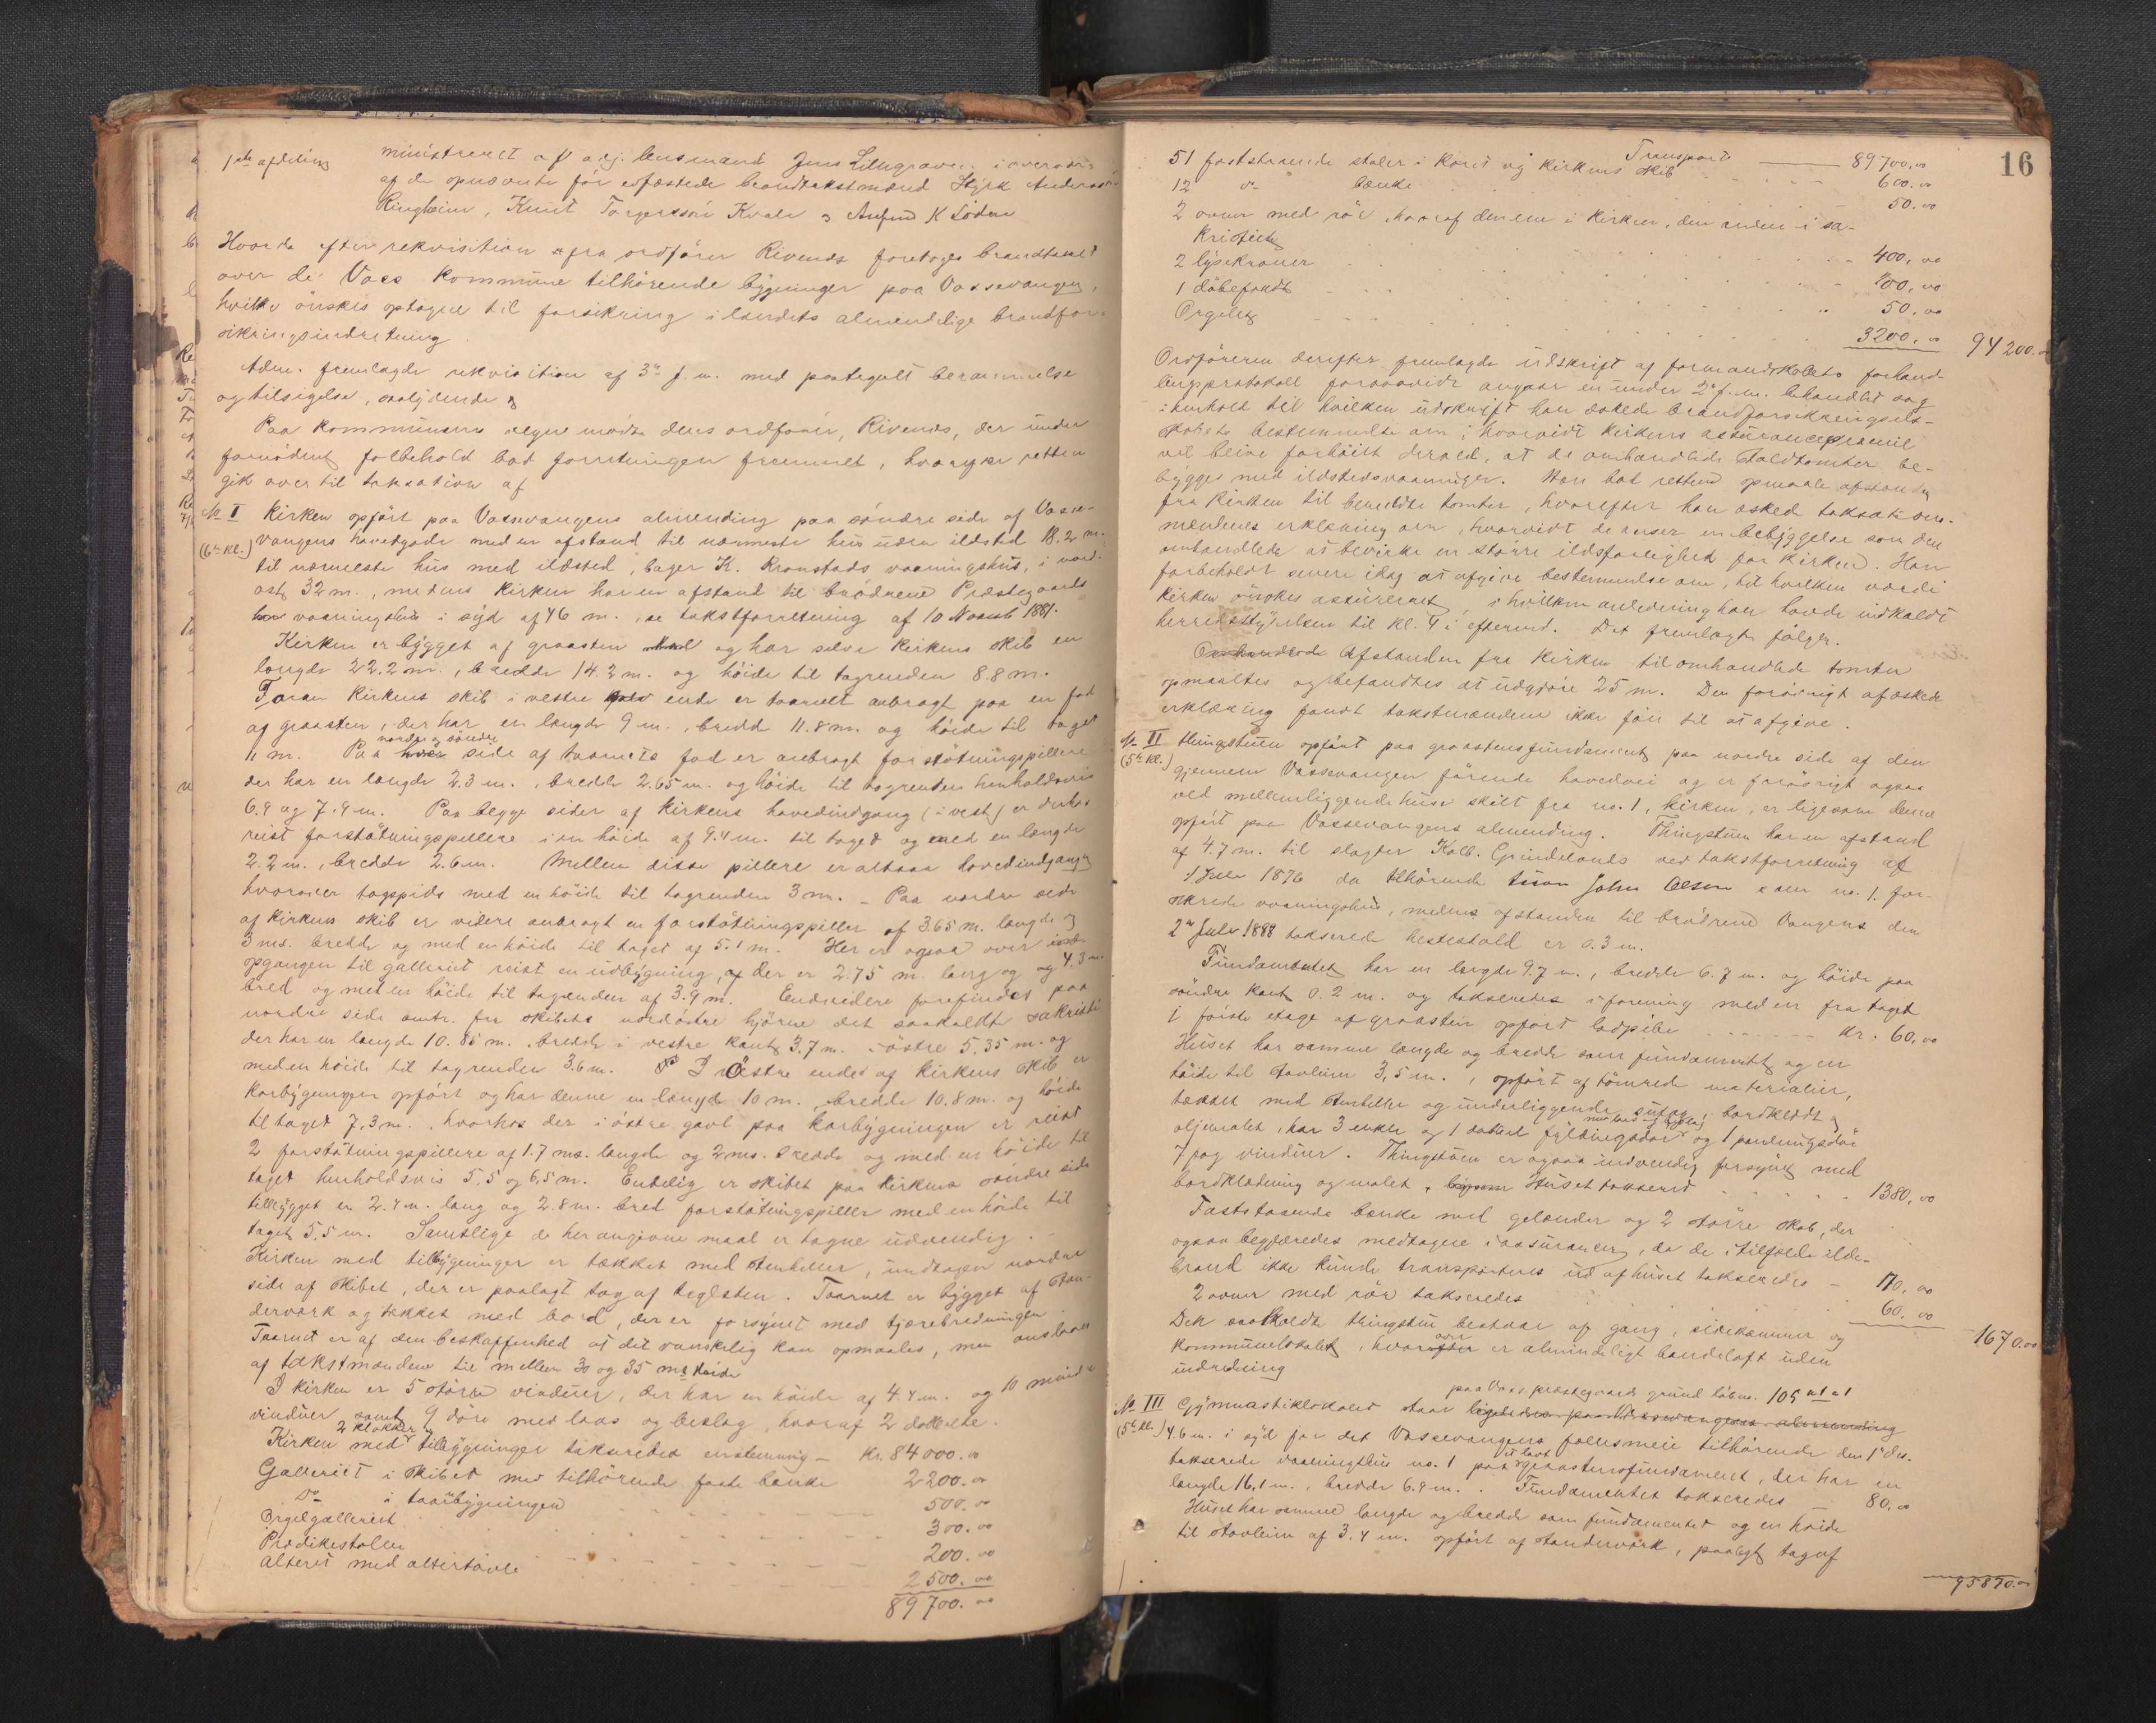 1ste afdeling
ministreret af adj. lensmand Jens Lillegraven i overvær
af de opnævnte før edfæstede brandtakstmænd Styrk Anders
Ringheim, Knut Torgersen Kvale og K Löden
Hvorda efter rekvisition fra ordfører Rivenes foretoges brandtakst
over de Voss kommune tilhørende bygninger paa Vossevangen,
hvilke ønskes optagne til forsikring i landets almindelige brandfor-
sikringsindretning.
Adm. fremlagde rekvisition af 3de f. m. med paategnet berammelse
og tilsigelse, saalydende
Paa kommunens vegne mødte dens ordfører, Rivenes, der under
fornødent forbehold bad forretningen fremmet, hvorefter retten
gik over til taksation af
No I Kirken opført paa Vossevangens almending paa søndre side af Vosse-
(6te Kl.) vangens hovedgade med en afstand til nærmeste hus uden ildsted 18.2 m.
til nærmeste hus med ildsted, bager K. Kronstads vaaningshus, i nord-
ost, 32 m., medens kirken har en afstand til brødrene Præstegaards
vaaningshus i syd af 46 m., se takstforretning af 10 Novemb 1881.
Kirken er bygget af graasten og har selve kirkens skib en
længde 22.2 m., bredde 14.2 m. og høide til tagrenden 8.8 m.
Foran kirkens skib i vestre ende er taarnet anbragt paa en fod
af graasten, der har en længde 9 m., bredd 11.8 m. og høide til taget
11 m. Paa nordre og søndre side af taarnets fod er anbragt forstøtningspillere
der har en længde 2.3 m., bredde 2.65 m. og høide til tagrenden henholdsvis
6.9 og 7.9 m. Paa begge sider af kirkens hovedindgang (i vest) er derhos
reist forstøtningspillere i en høide af 9.4 m. til taget og med en længde
2.2 m., bredde 2.6 m. Mellem disse pillere er altsaa hovedindgangen
hvorover tagspids med en høide til tagrenden 3 m. – Paa nordre side
af kirkens skib er videre anbragt en forstøtningspiller af 3.65 m. længde og
3 ms. bredde og med en høide til taget af 5.1 m. Her er ogsaa over
opgangen til galleriet reist en udbygning, der er 2.75 m. lang og 4.3 m.
bred og med en høide til tagrenden af 3.9 m. Endvidere forefindes paa
nordre side omtr. fra skibets nordøstre hjørne det saakaldte sakristi
der har en længde 10.85 m., bredde i vestre kant 3.7 m. i østre 5.35 m. og
med en høide til tagrenden 3.6 m. I østre ende af kirkens skib er
korbygningen opført og har denne en længde 10 m., bredde 10.8 m. og høide
til taget 7.3 m., hvorhos der i østre gavl paa korbygningen er reist
2 forstøtningspillere af 1.7 ms. længde og 2 ms. bredde og med en høide til
taget henholdsvis 5.5 og 6.5 m. Endelig er skibet paa kirkens søndre side
tilbygget en 2.4 m. lang og 2.8 m. bred forstøtningspiller med en høide til
taget 5.5 m. Samtlige de her angivne maal er tagne udvendig.
Kirken med tilbygninger er tækket med stenheller, undtagen nordre
side af skibet, der er paalagt tag af teglsten. Taarnet er bygget af stan-
derværk og tækket med bord, der er forsynet med tjærebredningen.
Taarnet er af den beskaffenhed at det vanskelig kan opmaales, men ansloaes
af takstmændene til mellem 30 og 35 ms høide
I kirken er 5 større vinduer, der har en høide af 4.4 m. og 10 mindre
vinduer samt 9 døre med laas og beslag, hvoraf 2 dobbelte.
Kirken med 2 klokker og tilbygninger takseredes enstemmig – Kr. 84000.00
Galleriet i skibet med tilhørende faste bænke 2200.00
Do i taarnbygningen 500.00
Orgelgalleriet 300.00
Prædikestolen 200.00
Alteret med altertavle 2500.00
89700.00
16
Transport 89700.00
51 faststaaende stoler i koret og kirkens skib 600.00
12 do bænke 50.00
2 ovner med rør, hvoraf den ene i kirken, den anden i sa-
kristiet 400.00
2 lysekroner 100.00
1 døbefondt 50.00
Orgelet 3200.00 94200.00
Ordføreren derefter fremlagde udskrift af formandskabets forhand-
lingsprotokoll forsaavidt angaar en under 2de f. m. behandlet sag
i henhold til hvilken udskrift han æskede brandforsikringssel-
skabets bestemmelse om, hvorvidt kirkens assurancepræmie
vil blive forhøiet derved, at de omhandlede staldtomter be-
bygges med ildstedsvaaninger. Han bad retten opmaale afstanden
fra kirken til benævnte tomter, hvorefter han æsked taksations-
mændenes erklæring om, hvorvidt de anser en bebyggelse som den
omhandlede at bevirke en større ildsfarlighed for kirken. Han
forbeholdt senere idag at afgive bestemmelse om, til hvilken værdi
kirken ønskes assureret, i hvilken anledning han havde indkaldt
herredsstyrelsen til kl. 4 i efterm. Det fremlagte følger.
Afstanden fra kirken til omhandlede tomter
opmaaltes og befandtes at udgjøre 25 m. Den forøvrigt afæskede
erklæring fandt takstmændene ikke før til at afgive.
No II Thingstuen opført paa graastensfundament paa nordre side af den
(5te Kl.) gjennem Vossevangen førende hovedvei og er forøvrigt ogsaa
ved mellemliggende huse skilt fra no. 1, kirken, er ligesom denne
opført paa Vossevangens almending. Thingstuen har en afstand
af 4.7 m. til slagter Kolb. Grindelands ved takstforretning af
1 Juli 1876 da tilhørende John Olsen under no. 1. for-
sikrede vaaningshus, medens afstanden til brødrene Vangens den
2de Juli 1888 takserede hestestald er 0.3 m.
Fundamentet har en længde 9.7 m., bredde 6.7 m. og høide paa
søndre kant 0.2 m. og takseredes i forening med en fra taget
i første etage af graasten opført ladpibe kr. 60.00
Huset har samme længde og bredde som fundamentet og en
høide til stavleien 3,5 m., opført af tømrede materialier,
tækket med stenheller og underliggende sutag, bordklædt og
oljemalet, har 3 enkle og 1 dobbel fyldingsdør med laas og beslag og 1 pandningsdør
7 fag vinduer. Thingstuen er ogsaa indvendig forsynet med
bordklædning og malet. Huset takseret 1380.00
Faststaaende bænke med gelænder og 2 større skab, der
ogsaa begjæredes medtagne i assurancen, da de i tilfælde ilde-
brand ikke kunde transporteres ud af huset takseredes – 170.00
2 ovner med rør takseredes 60.00 1670.00
Den saakaldte thingstue bestaar af gang, sidekammer og
kommunelokalet, hvorover er almindeligt bordeloft uden
indredning
No III Gymnastiklokalet staar paa Voss præstegaards grund løbno. 105
(5te Kl.) 4.6 m. i syd for det Vossevangens fællesmeie tilhørende den 1ste ds.
takserede vaaningshus no. 1 paa et lavt graastensfundament, der har en
længde 16.1 m., bredde 6.9 m. Fundamentet takseredes – 80.00
Huset har samme længde og bredde som fundamentet og en høide
til stavleien af 3.4 m. opført af standerværk, paalagt tag af
95870.00